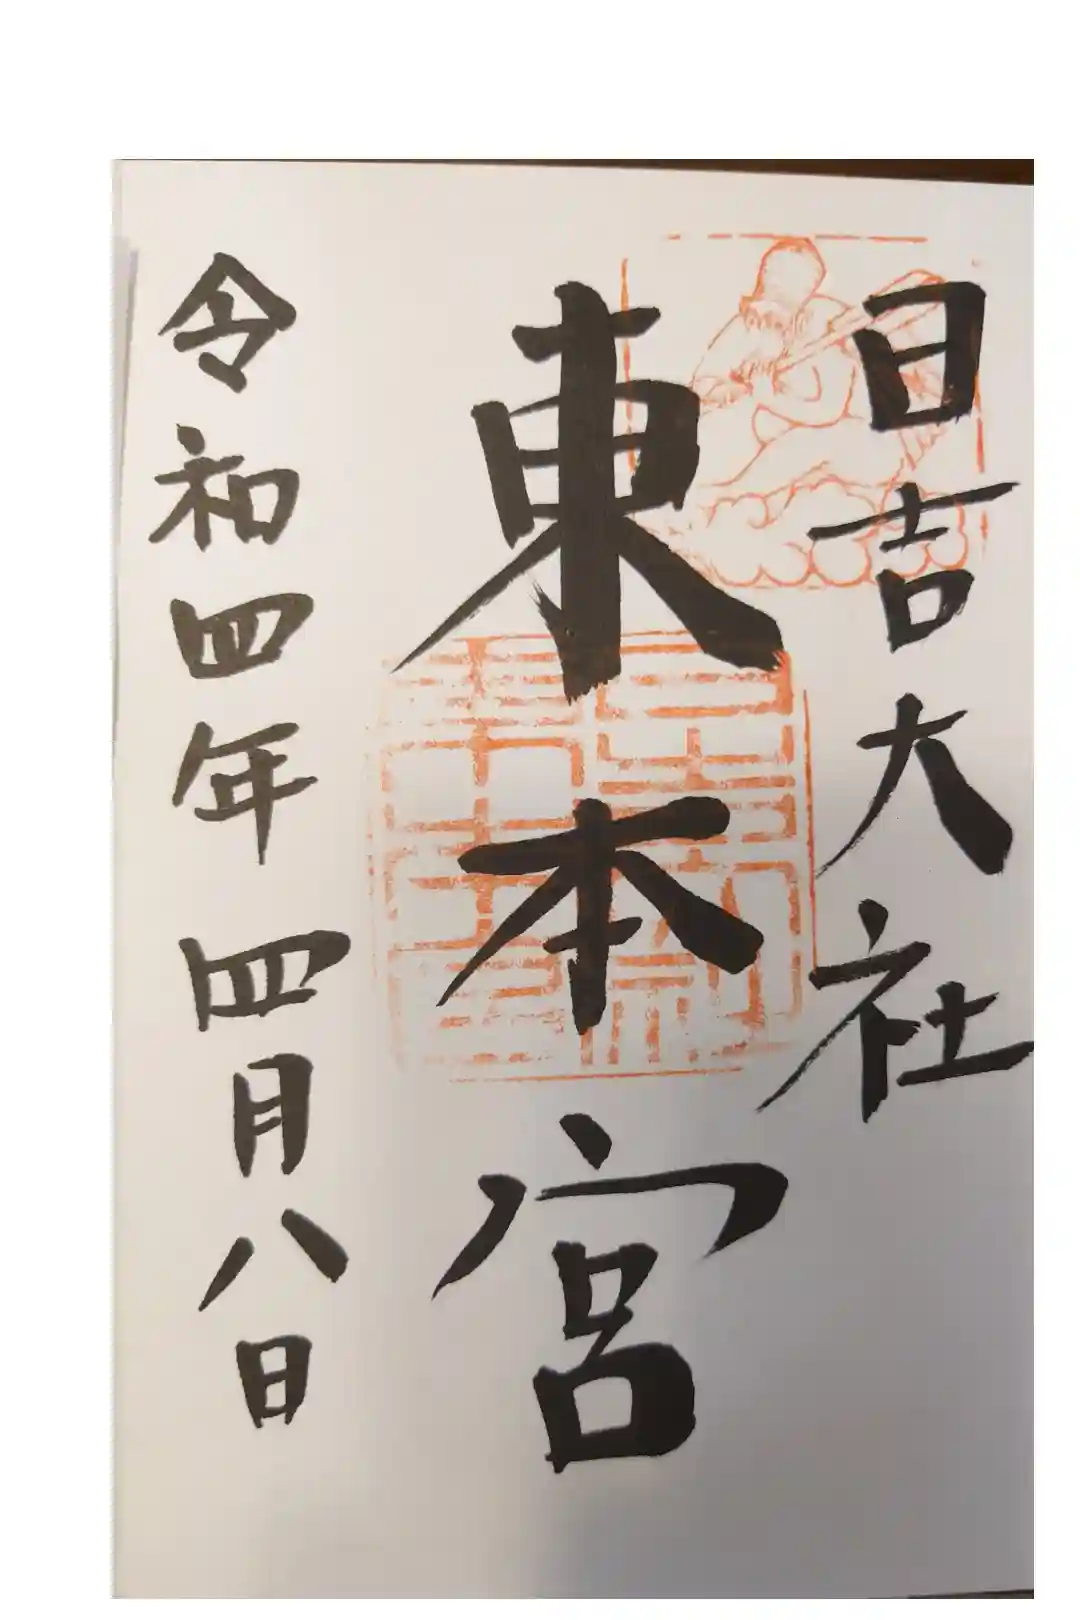 日吉大社
東本宮
令和四年四月八日